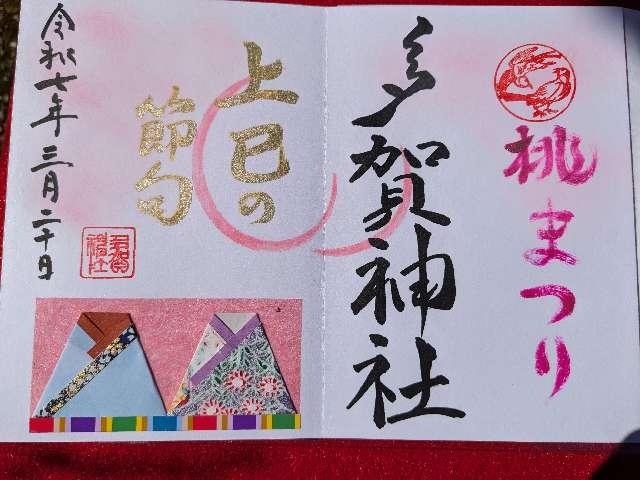 桃まつり
多賀神社
上巳の
節句
令和七年三月二十日
多賀
神社